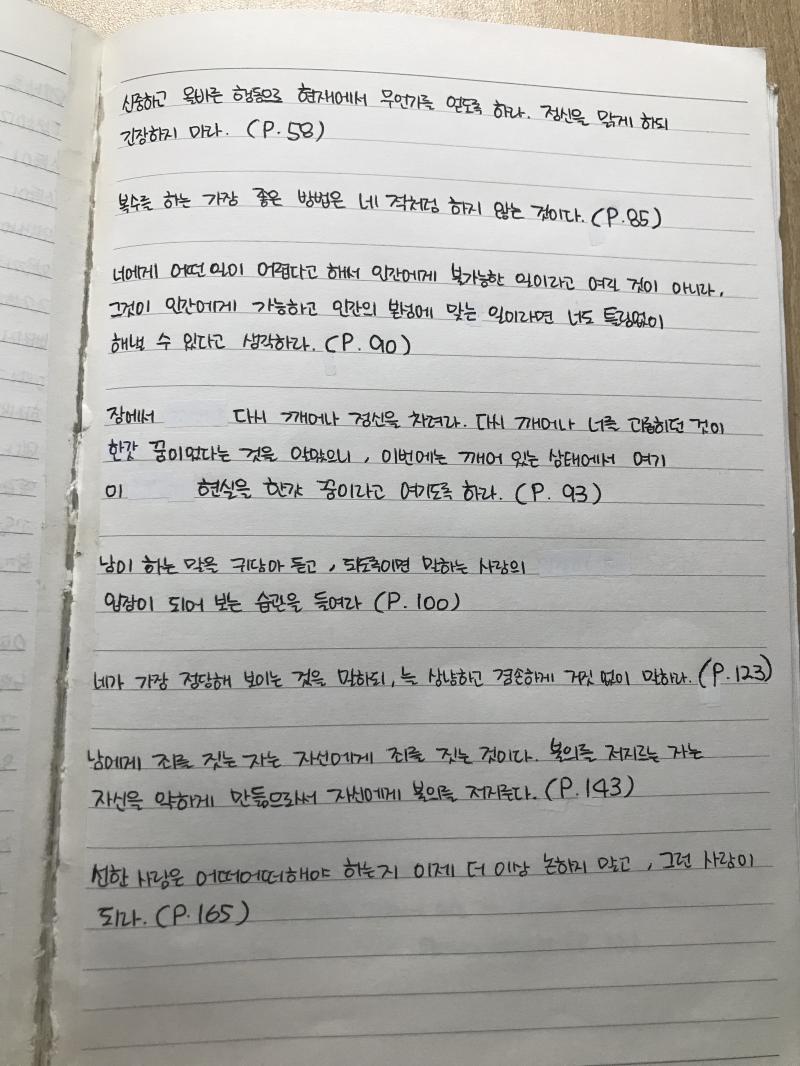 신중하고 올바른 행동으로 현재에서 무언가를 얻도록 하라. 정신을 맑게 하되
긴장하지 마라. (P.58)
복수를 하는 가장 좋은 방법은 네 적처럼 하지 않는 것이다. (P.85)
너에게 어떤 일이 어렵다고 해서 인간에게 불가능한 일이라고 여길 것이 아니라,
그것이 인간에게 가능하고 인간의 본성에 맞는 일이라면 너도 틀림없이
해낼 수 있다고 생각하라. (P.90)
잠에서 다시 깨어나 정신을 차려라. 다시 깨어나 너를 괴롭히던 것이
한갓 꿈이었다는 것을 알았으니, 이번에는 깨어 있는 상태에서 여기
이 현실을 한갓 꿈이라고 여기도록 하라. (P. 93)
남이 하는 말을 귀담아 듣고, 되도록이면 말하는 사람의
입장이 되어 보는 습관을 들여라 (P.100)
네가 가장 정당해 보이는 것을 말하되, 늘 상냥하고 겸손하게 거짓 없이 말하라. (P.123)
남에게 죄를 짓는 자는 자신에게 죄를 짓는 것이다. 불의를 저지르는 자는
자신을 악하게 만듦으로써 자신에게 불의를 저지른다. (P.143)
선한 사람은 어떠어떠해야 하는지 이제 더 이상 논하지 말고, 그런 사람이
되라. (P.165)